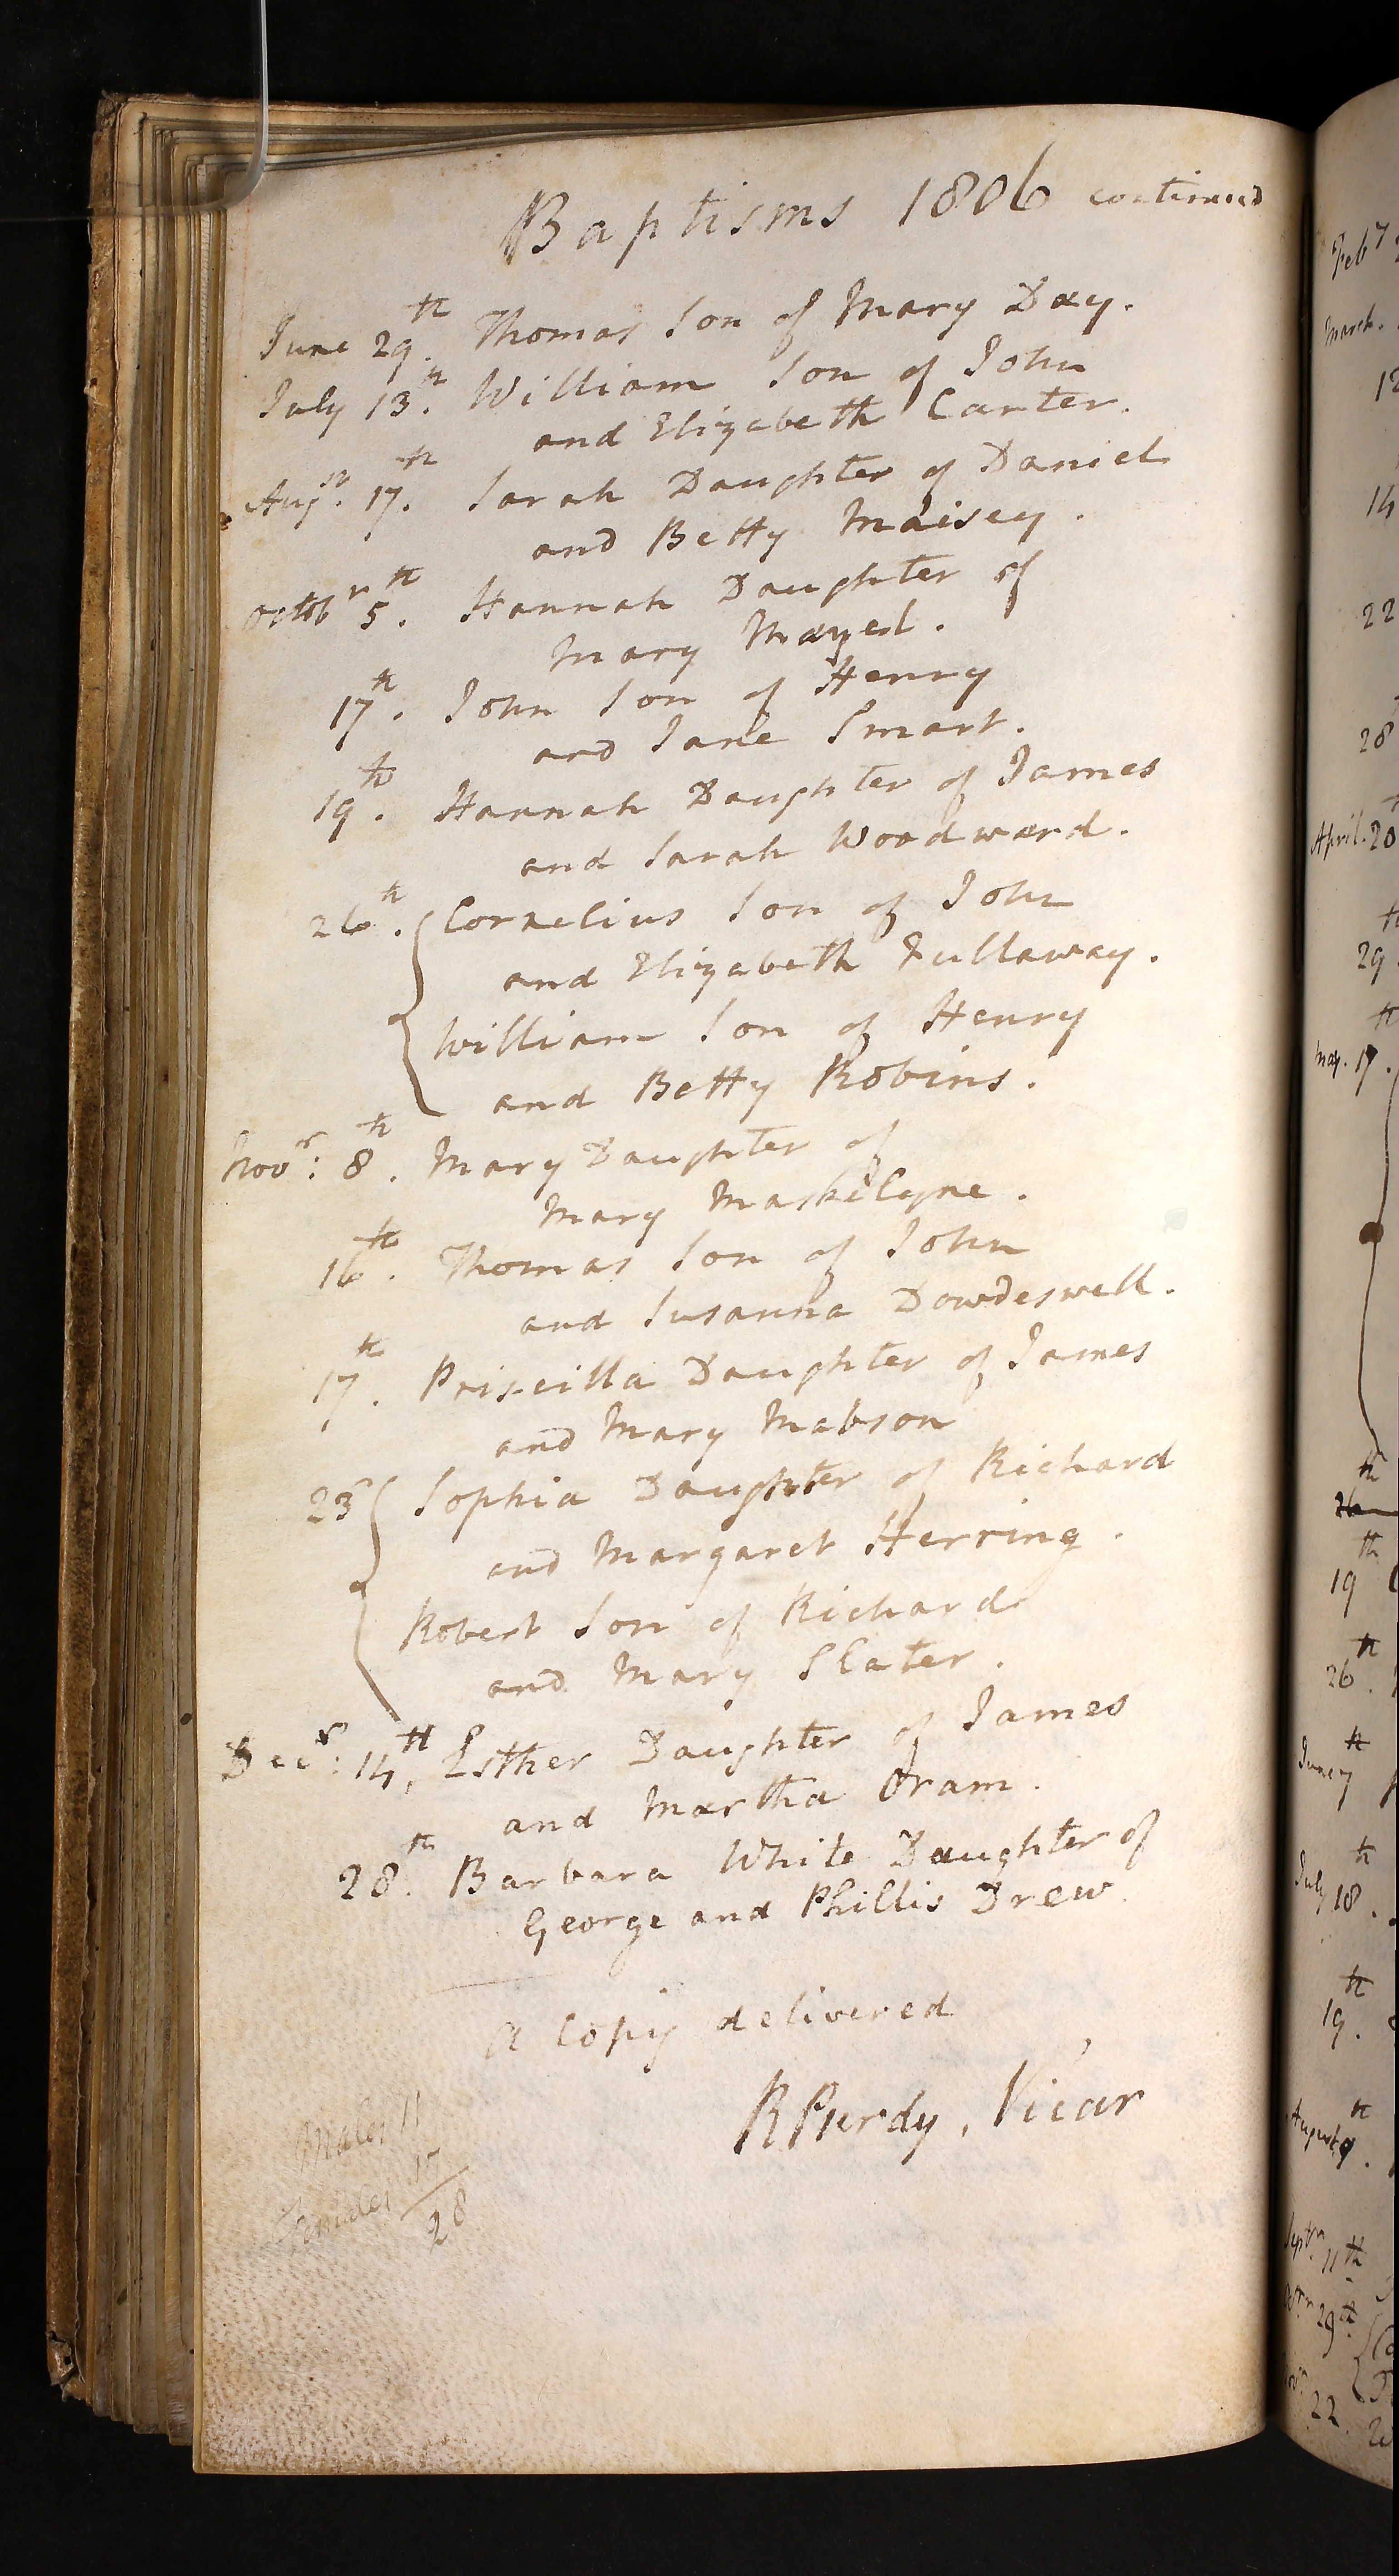 Baptisms 1806 continued
June 29th. Thomas Son of Mary Day.
July 13th. William Son of John
and Elizabeth Carter.
Augst. 17th. Sarah Daughter of Daniel
and Betty Maisey.
Octobr 5th. Hannah Daughter of
Mary Mayed.
17th. John Son of Henry
and Jane Smart.
19th. Hannah Daughter of James
and Sarah Woodward.
26th. Cornelius Son of John
and Elizabeth Fullaway.
William Son of Henry
and Betty Robins.
Novr: 8th. Mary Daughter of
Mary Maskelyne.
16th. Thomas Son of John
and Susanna Dowdeswell.
17th. Priscilla Daughter of James
and Mary Mabson
23d Sophia Daughter of Richard
and Margaret Herring.
Robert Son of Richard
and Mary Slater.
Decr: 14th. Esther Daughter of James
and Martha Oram.
28th. Barbara White Daughter of
George and Phillis Drew
A Copy delivered
R Purdy, Vicar
Males 11
Females 17
28
Feby
March.
12
14
22
28
April. 20
th
29
th
May. 17.
th
26
th
19
th
26.
June 7th
July 18th.
th
19.
August 9th.
Septr 11th
29th
22